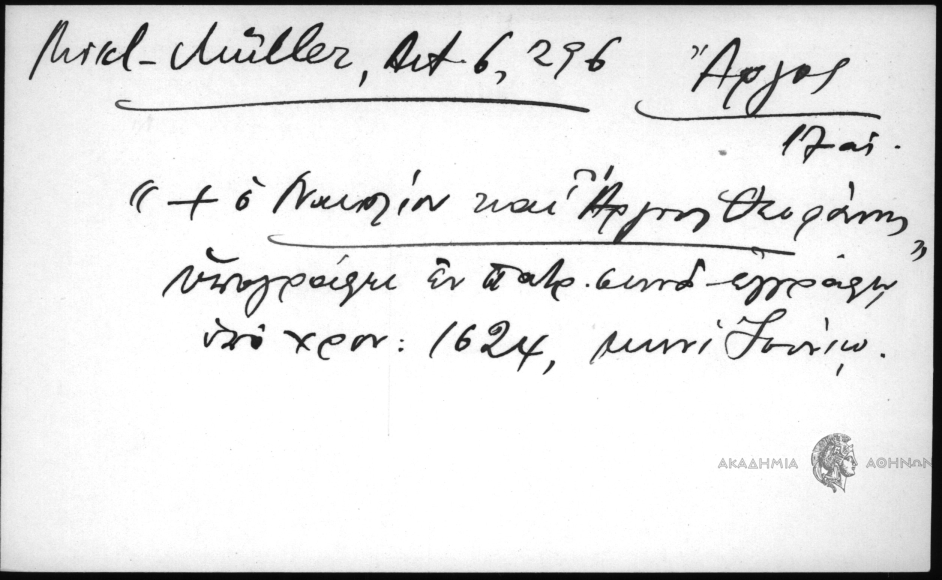 Mikl-Müller, Act. 6, 296 Ἄργος
17 αἰ.
"+ ὁ Ναυπλίου καὶ Ἄργους Θεοφάνης"
ὑπογράφει ἐν πατρ. συνοδ. ἐγγράφῳ
ὑπὸ χρον: 1624, μηνὶ Ἰουνίῳ.
ΑΚΑΔΗΜΙΑ ΑΘΗΝΩΝ